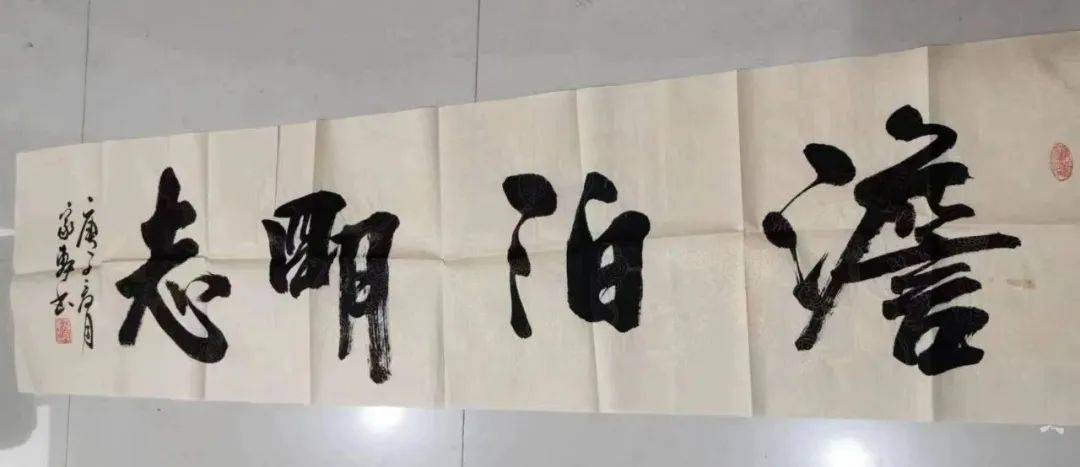 澹泊明志
庚子月
家书